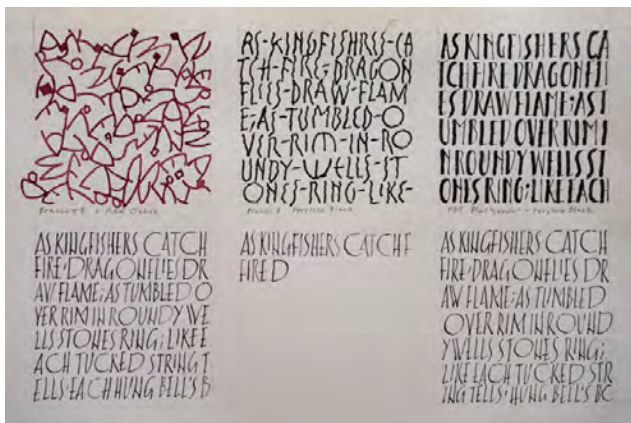 AS-KINGFISHRES-CA
TCH-FIRE;DRAGON
FLIES-DRAW-FLAM
E;AS-TUMBLED-O
VER-RIM-IN-RO
UNDY-WELLS-ST
ONES-RING-LIKE-
AS KINGFISHERS CA
TCH FIRE DRAGONFLI
ES DRAW FLAME;AS T
UMBLED OVER RIM I
N ROUNDY WELLS ST
ONES RING; LIKE EACH
Perylene Black
Perylene Black
AS KINGFISHERS CATCH
FIRE·DRAGONFLIES DR
AW FLAME; AS TUMBLED O
VER RIM IN ROUNDY WE
LLS STONES RING; LIKE E
ACH TUCKED STRING T
ELLS·EACH HUNG BELL'S B
AS KINGFISHERS CATCH F
IRE D
AS KINGFISHERS CATCH
FIRE·DRAGONFLIES DR
AW FLAME; AS TUMBLED
OVER RIM IN ROUND
Y WELLS STONES RING;
LIKE EACH TUCKED STR
ING TELLS· HUNG BELL'S BC